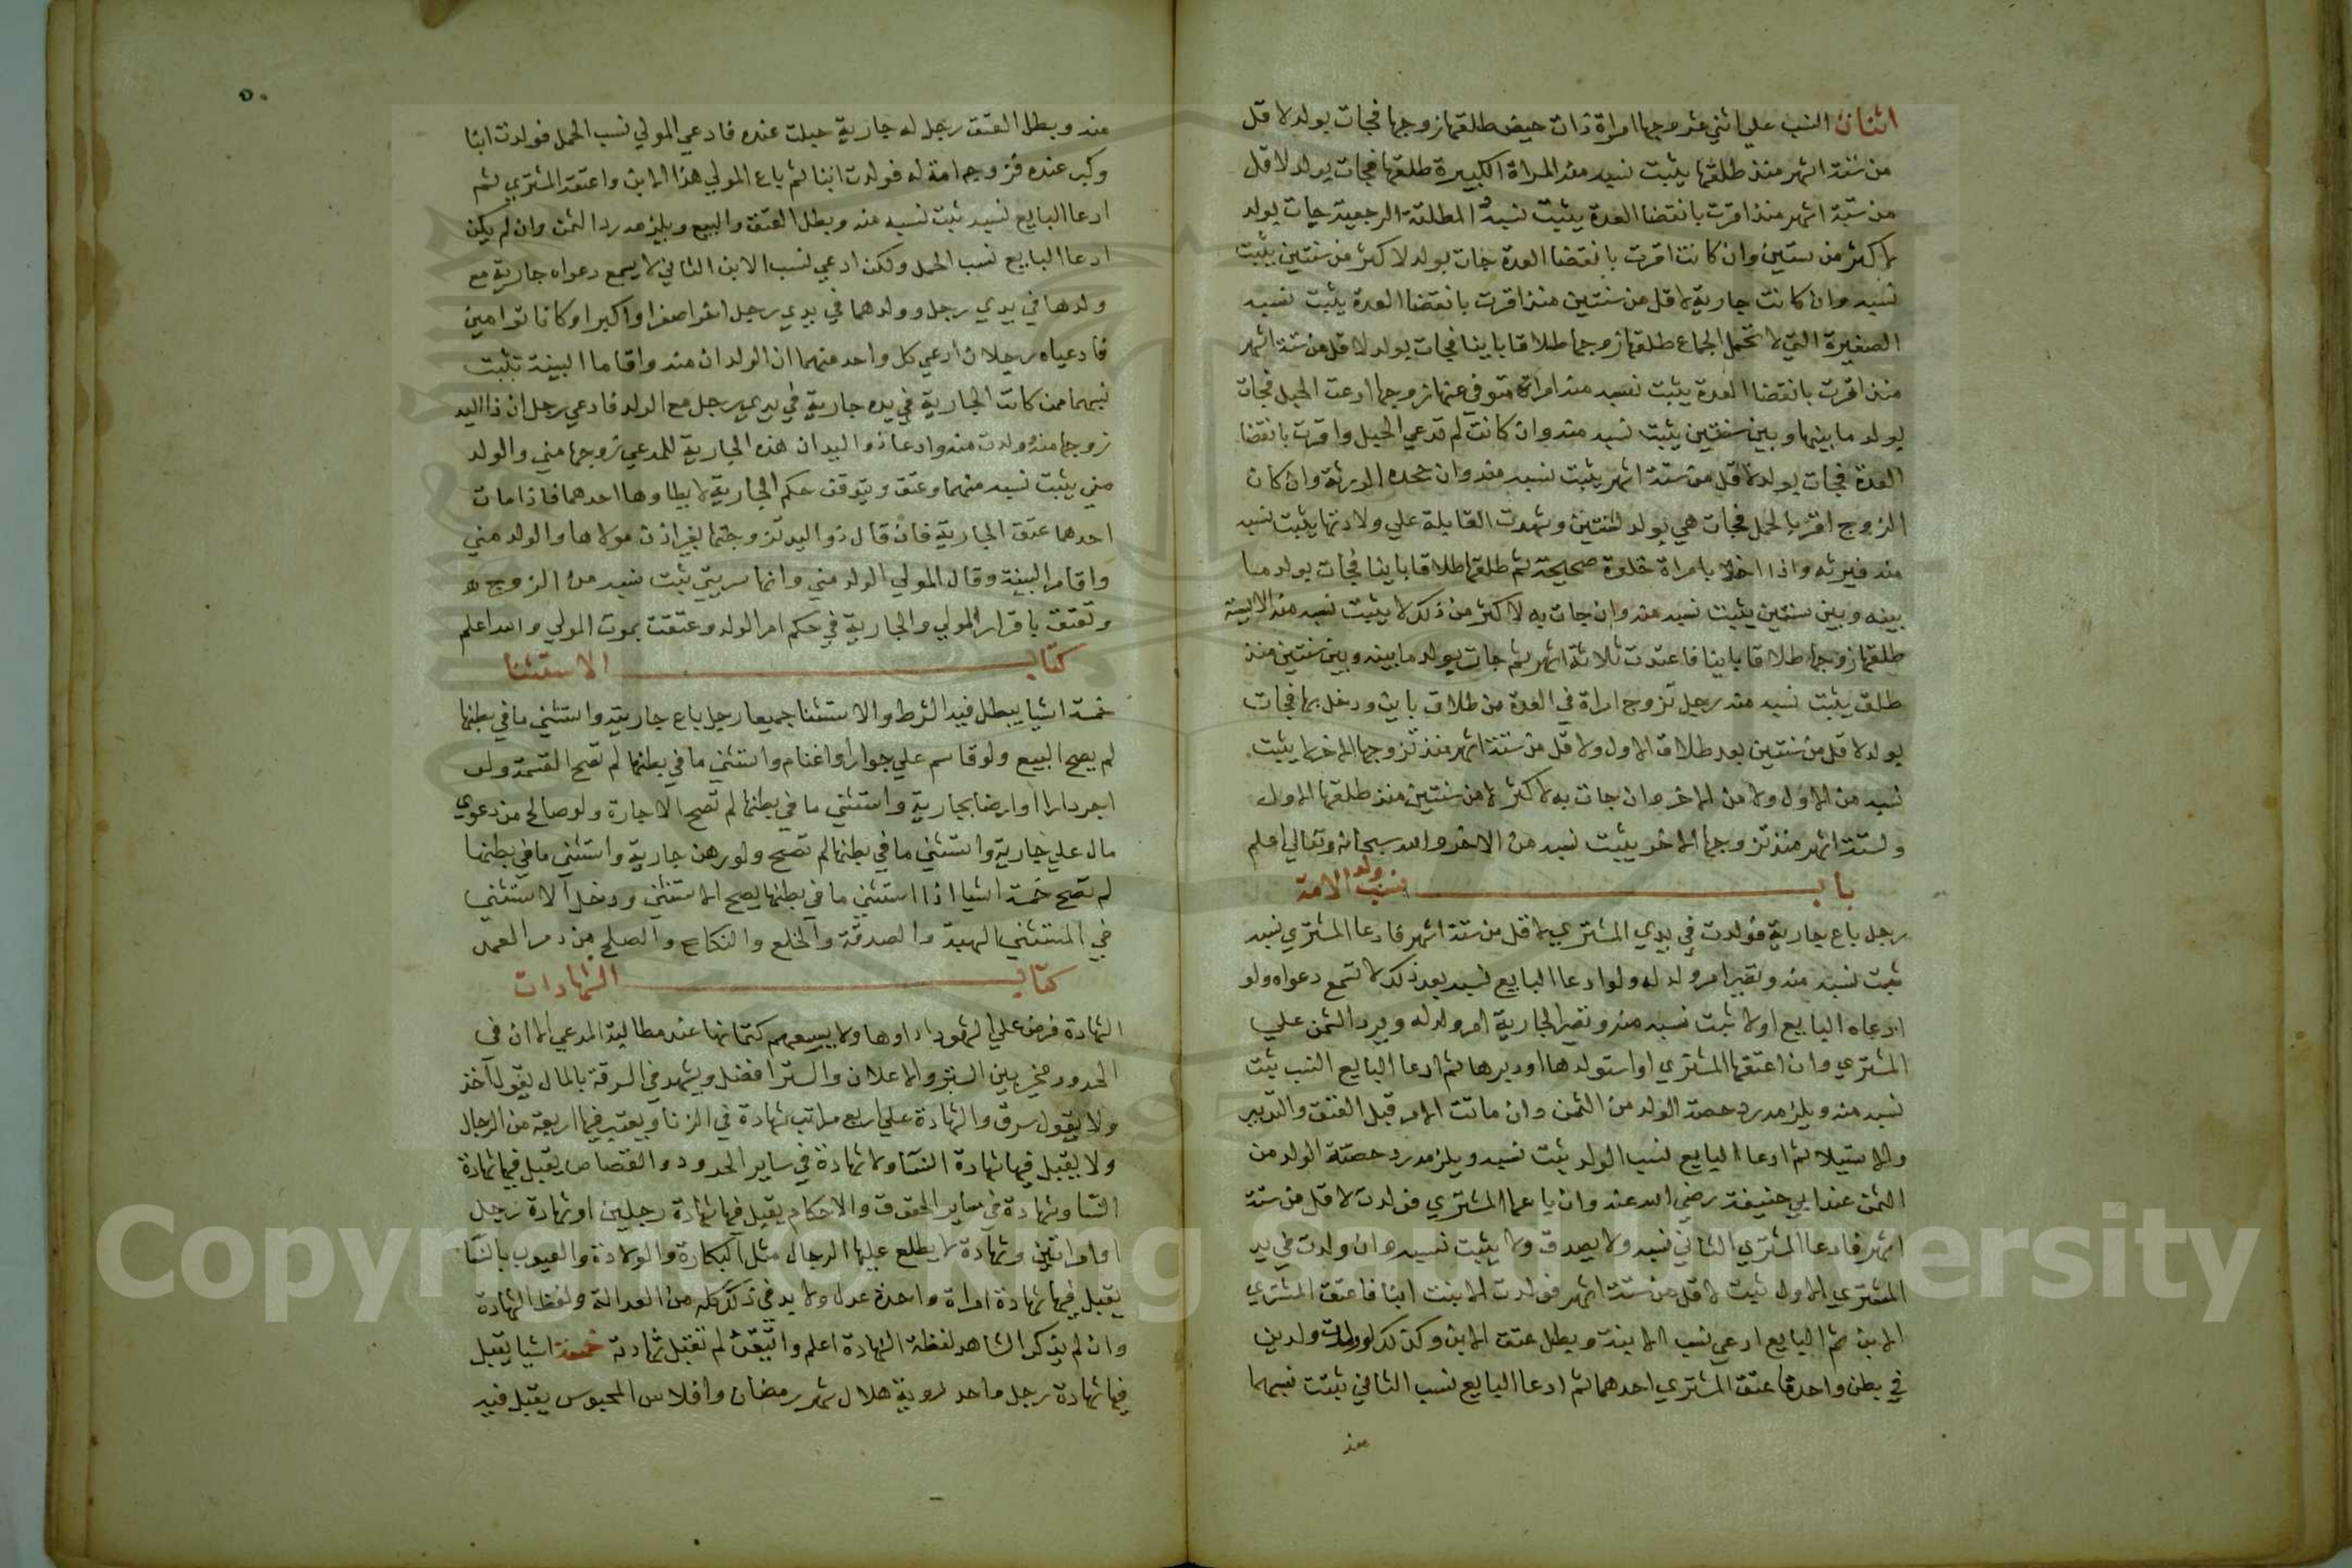 اثنان النسب علي اثني عشر وجها امراة ذات حيض طلقها زوجها فجات بولد لاقل
من ستة اشهر منذ طلقها يثبت نسبه منه المراة الكبيرة طلقها فجات بولد لاقل
من ستة اشهر منذ اقرت بانقضا العدة يثبت نسبه المطلقة الرجعية جات بولد
لاكثر من سنتين وان كانت اقرت بانقضا العدة جات بولد لاكثر من سنتين يثبت
نسبه وان كانت جارية لاقل من سنتين منذ اقرت بانقضا العدة يثبت نسبه
الصغيرة التي لا تحتمل الجماع طلقها زوجها طلاقا باينا فجات بولد لاقل من ستة اشهر
منذ اقرت بانقضا العدة يثبت نسبه منه امراة متوفي عنها زوجها ادعت الحبل فجات
بولد ما بينها وبين سنتين يثبت نسبه منه وان كانت لم تدعي الحبل واقرت بانقضا
العدة فجات بولد لاقل من ستة اشهر يثبت نسبه منه وان جحده الورثة وان كان
الزوج اقر بالحمل فجات هي بولد لسنتين وشهدت القابلة علي ولادتها يثبت نسبه
منه فيرثه واذا اخلا بامراة خلوة صحيحة ثم طلقها طلاقا باينا فجات بولد ما
بينه وبين سنتين يثبت نسبه منه وان جات به لاكثر من ذلك لا يثبت نسبه منه الايسة
طلقها زوجها طلاقا باينا فاعتدت ثلاثة اشهر ثم جات بولد ما بينه وبين سنتين منذ
طلق يثبت نسبه منه رجل تزوج امراة في العدة من طلاق باين ودخل بها فجات
بولد لاقل من سنتين بعد طلاق الاول ولاقل من ستة اشهر منذ تزوجها الاخر لا يثبت
نسبه من الاول ولا من الاخر وان جات به لاكثر لا من سنتين منذ طلقها الاول
ولستة اشهر منذ تزوجها الاخر يثبت نسبه من الاخر والله سبحانه وتعالي اعلم
باب نسب ولد الامة
رجل باع جارية فولدت في يدي المشتري لاقل من ستة اشهر فادعا المشتري نسبه
ثبت نسبه منه وتصير ام ولد له ولو ادعا البايع نسبه بعد ذلك لا تسمع دعواه ولو
ادعاه البايع اولا ثبت نسبه منه وتصير الجارية ام ولد له ويرد الثمن علي
المشتري وان اعتقها المشتري او استولدها او دبرها ثم ادعا البايع النسب يثبت
نسبه منه ويلزمه رد حصة الولد من الثمن وان ماتت الام قبل العتق والتدبير
والاستيلا ثم ادعا البايع نسب الولد يثبت نسبه ويلزمه رد حصة الولد من
الثمن عند ابي حنيفة رضي الله عنه وان باعها المشتري فولدت لاقل من ستة
اشهر فادعا المشتري الثاني نسبه ولا يصدق ولا يثبت نسبه وان ولدت في يد
المشتري الاول ثبت لاقل من ستة اشهر فولدت الابنت ابنا فاعتق المشتري
الابن ثم البايع ادعي نسب الابنة وبطل عتق الابن وكذلك لو ولدت ولدين
في بطن واحدة اعتق المشتري احدهما ثم ادعا البايع نسب الثاني يثبت نسبهما
منه
٥٠
منه وبطل العتق رجل له جارية حبلت عنده فادعي المولي نسب الحمل فولدت ابنا
وكبر عنده فزوجه امة له فولدت ابنا ثم باع المولي هذا الابن واعتقه المشتري ثم
ادعا البايع نسبه ثبت نسبه منه وبطل العتق والبيع ويلزمه رد الثمن وان لم يكن
ادعا البايع نسب الحمل ولكن ادعي نسب الابن الثاني لا يسمع دعواه جارية مع
ولدها في يدي رجل وولدهما في يدي رجل اخر اصغر او اكبر او كانا توامين
فادعياه رجلان ادعي كل واحد منهما ان الولدان منه واقاما البينة تثبت
نسبهما ممن كانت الجارية في يده جارية في يدي رجل مع الولد فادعي رجل ان ذا اليد
زوجها منه وولدت منه وادعا ذو اليد ان هذه الجارية للمدعي زوجها مني والولد
مني يثبت نسبه منهما وعتق ويتوقف حكم الجارية لا يطاوها احدهما فاذا مات
احدهما عتق الجارية فان قال ذو اليد تزوجتها بغير اذن مولاها والولد مني
واقام البينة وقال المولي الولد مني وانها سريتي يثبت نسبه من الزوج
وتعتق باقرار المولي والجارية في حكم ام الولد وعتقت بموت المولي والله اعلم
كتاب الاستثنا
خمسة اشيا يبطل فيه الشرط والاستثنا جميعا رجل باع جارية واستثني ما في بطنها
لم يصح البيع ولو قاسم علي جوار واغنام واستثني ما في بطنها لم تصح القسمة ولو
اجر دارا او ارضا بجارية واستثني ما في بطنها لم تصح الاجارة ولو صالح من دعوي
مال علي جارية واستثني ما في بطنها لم تصح ولو رهن جارية واستثني ما في بطنها
لم تصح خمسة اشيا اذا استثني ما في بطنها يصح الاستثني ودخل الاستثني
في المستثني الهبة والصدقة والخلع والنكاح والصلح من دم العمد
كتاب الشهادات
الشهادة فرض علي الشهود اداوها ولا يسعهم كتمانها عند مطالبة المدعي الا ان في
الحدود مخير بين الستر والاعلان والستر افضل ويشهد في السرقة بالمال ليقول اخذ
ولا يقول سرق والشهادة علي اربع مراتب شهادة في الزنا ويعتبر فيها اربعة من الرجال
ولا يقبل فيها شهادة النسا ولا شهادة في ساير الحدود والقصاص يقبل فيها شهادة
النسا وشهادة في ساير الحقوق والاحكام يقبل فيها شهادة رجلين او شهادة رجل
او امراتين وشهادة لا يطلع عليها الرجال مثل البكارة والولادة والعيوب بالنسا
يقبل فيها شهادة امراة واحدة عدل ولا بد في ذلك كله من العدالة ولفظ الشهادة
وان لم يذكر الشاهد لفظة الشهادة اعلم واتيقن لم تقبل شهادته خمسة اشيا يقبل
فيها شهادة رجل واحد لروية هلال شهر رمضان وافلاس المحبوس يقبل فيه
Copyright © King Saud University